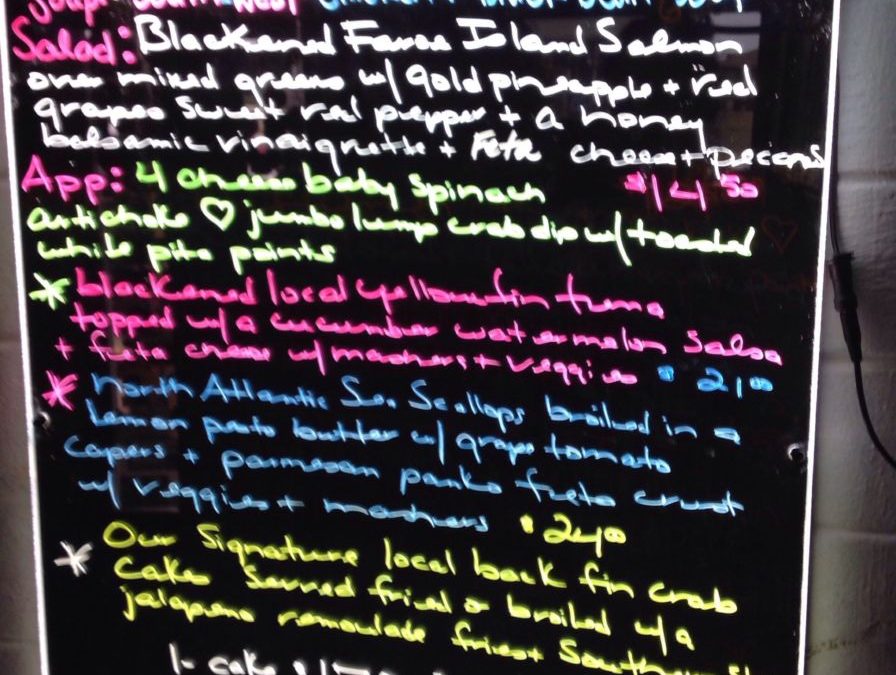 Soup: Southwest Chicken
Salad: Blackened Faroe Island Salmon
over mixed greens w/ gold pineapple + red
grapes sweet red pepper + a honey
balsamic vinaigrette + Feta cheese + pecans
App: 4 cheese baby spinach $14 50
artichoke ♡ jumbo lump crab dip w/ toasted
white pita points
* blackened local yellowfin tuna
topped w/ a cucumber watermelon salsa
+ feta cheese w/ mashers + veggies $ 21 00
* North Atlantic Sea Scallops broiled in a
lemon pesto butter w/ grape tomato
capers + parmesan panko crust
w/ veggies + mashers $ 24 00
* Our Signature local back fin crab
cakes Served fried or broiled w/ a
jalapeno remoulade fries + Southern
1- cake